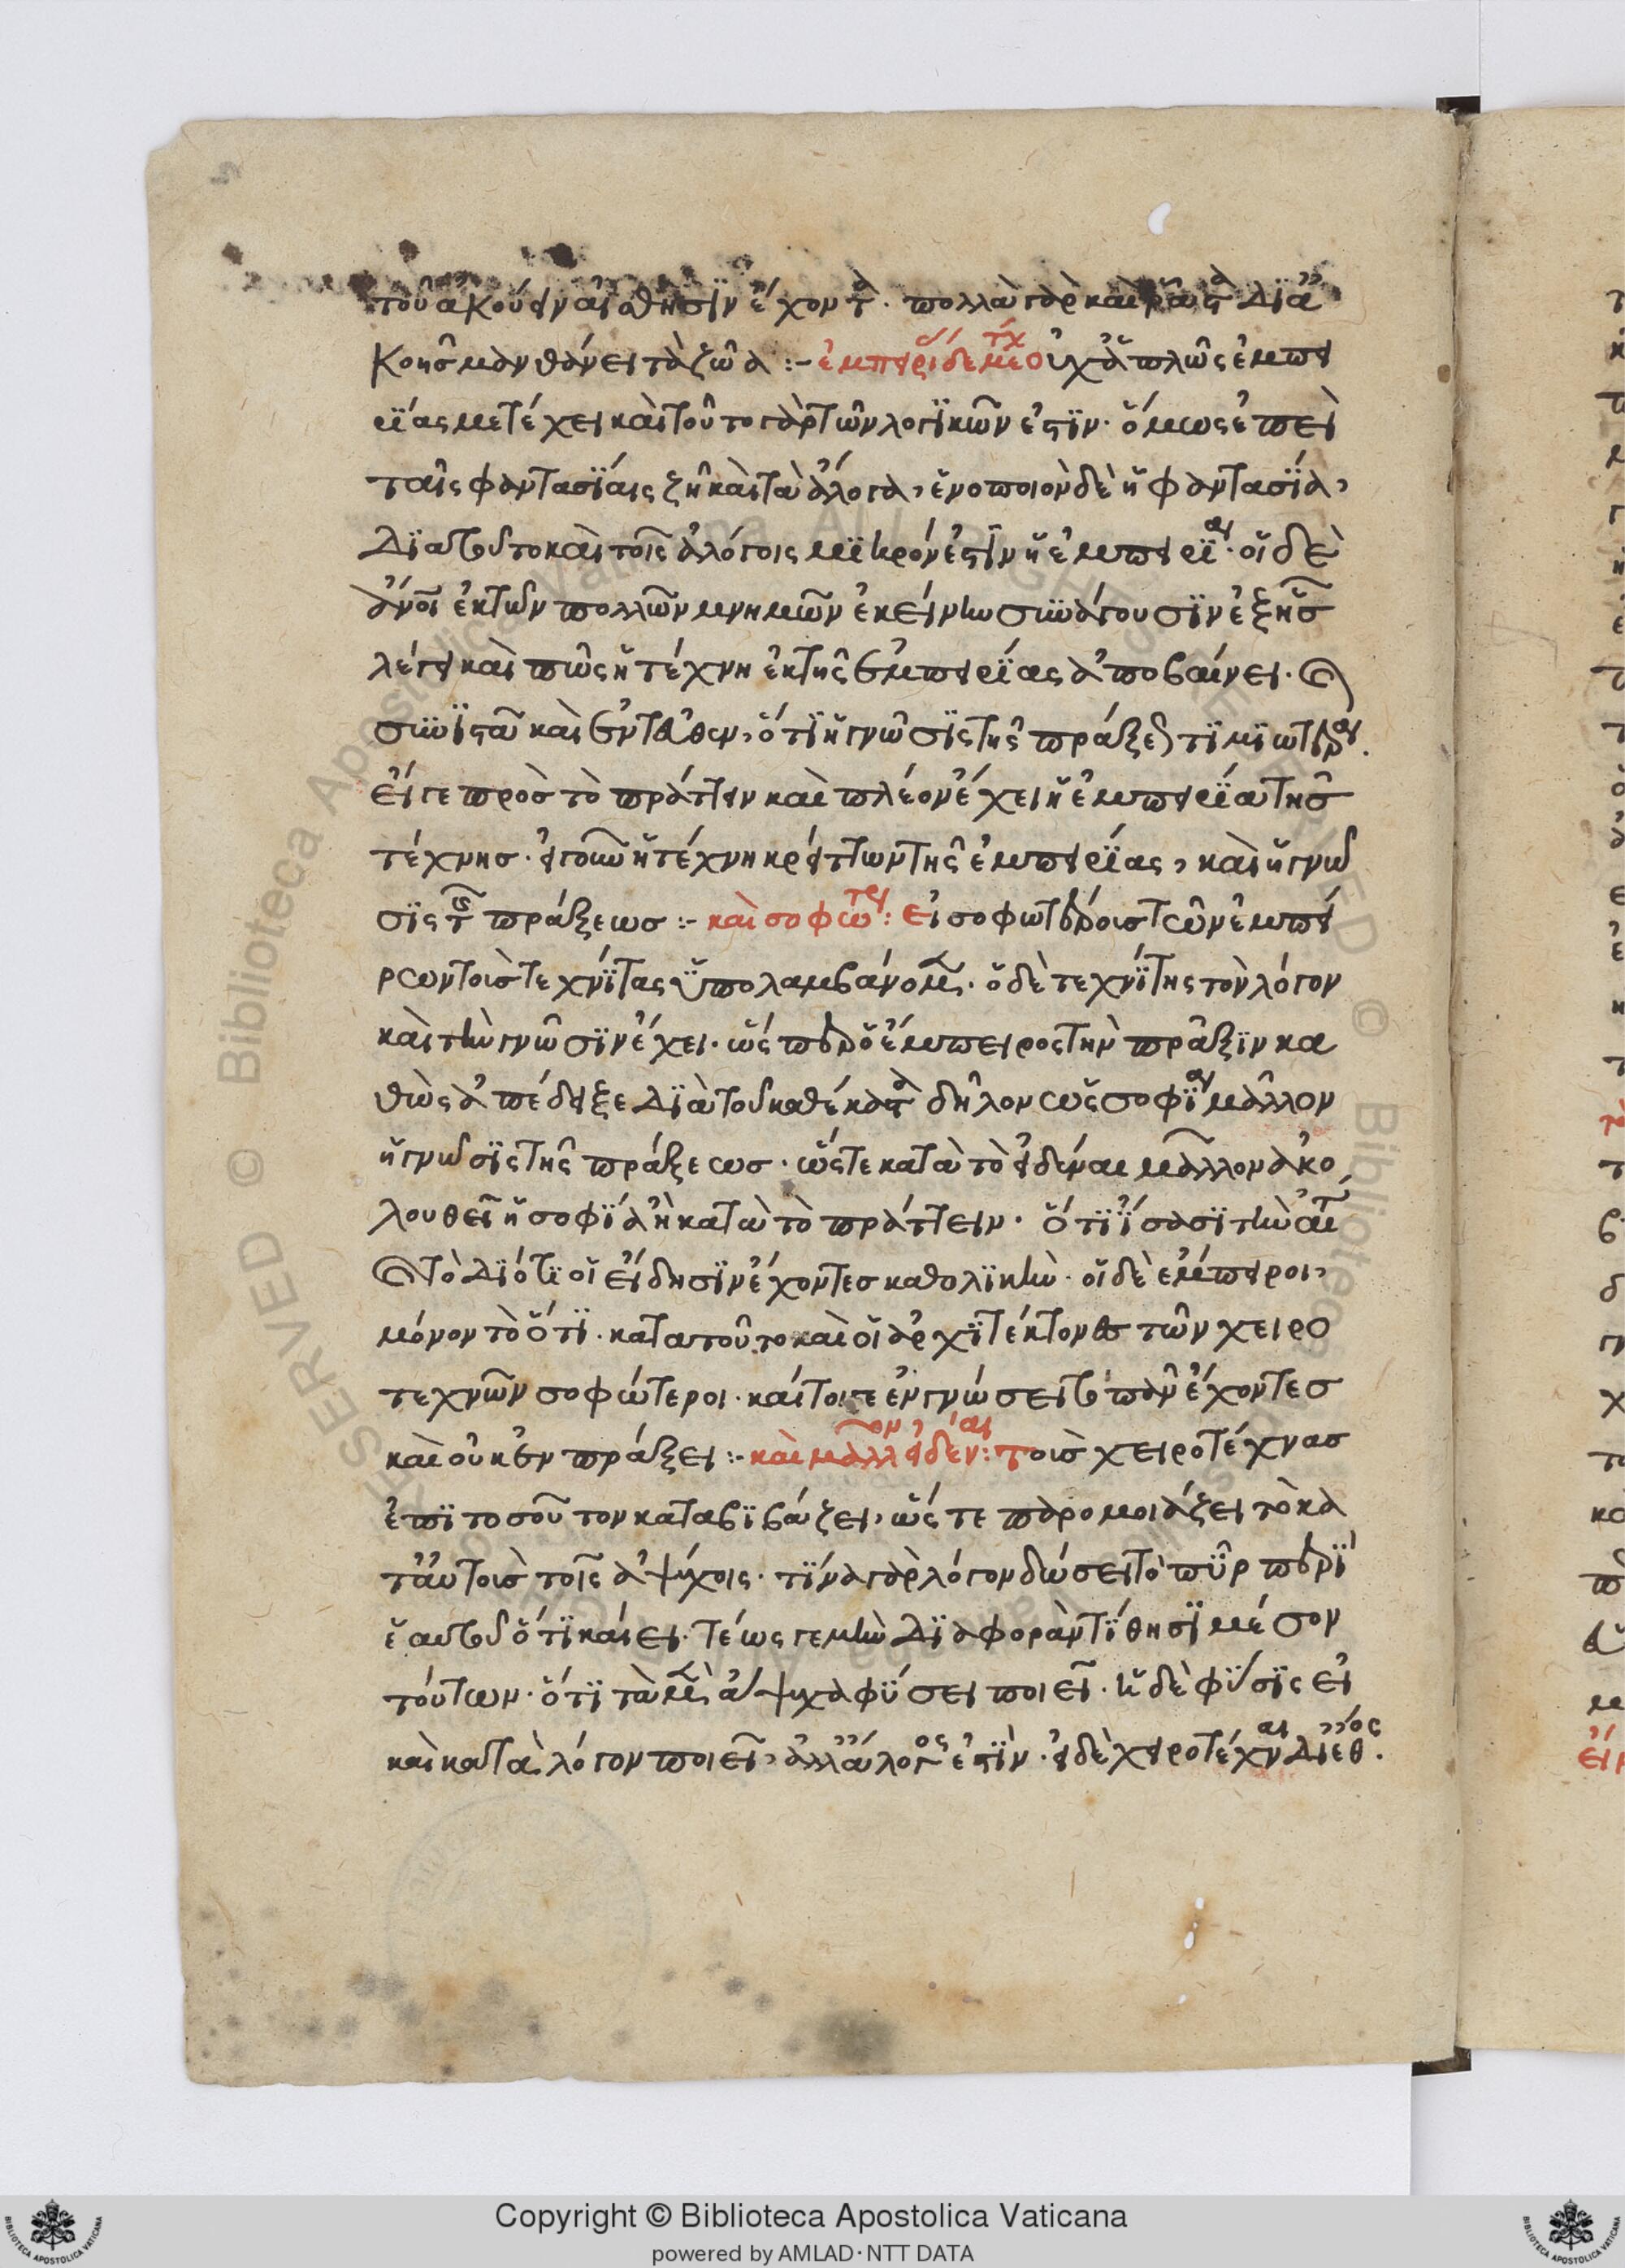 τοῦ ἀκούειν αἴσθησιν ἔχοντα. πολλὰ γὰρ καὶ διὰ
κοῆς μανθάνει τὰ ζῶα :- ἐμπειρίας δὲ μετέχει οὐχ ἁπλῶς ἐμπει
ρίας μετέχει καὶ τοῦτο γὰρ τῶν λογικῶν ἐστὶν. ὅμως ἐπεὶ
ταῖς φαντασίαις ζῆ καὶ τὰ ἄλογα, ἑνοποιὸν δὲ ἡ φαντασία,
διὰ τοῦτο καὶ τοῖς ἀλόγοις μικρόν ἐστιν ἡ ἐμπειρία. οἱ δὲ
ἄνοι ἐκ τῶν πολλῶν μνημῶν ἐκείνην συνάγουσιν ἑξῆς
λέγει καὶ πῶς ἡ τέχνη ἐκ τῆς ἐμπειρίας ἀποβαίνει.
συνιστᾶ καὶ ἐντεῦθεν, ὅτι ἡ γνῶσις τῆς πράξεως τιμιωτέρα.
εἴγε πρὸς τὸ πράττειν καὶ πλέον ἔχει ἡ ἐμπειρία τῆς
τέχνης. εἰ γοῦν ἡ τέχνη κρείττων τῆς ἐμπειρίας, καὶ ἡ γνῶ
σις τῆς πράξεως :- καὶ σοφωτέρους: εἰ σοφωτέροις τῶν ἐμπεί
ρων τοὶς τεχνίτας ὑπολαμβάνομεν. ὁ δὲ τεχνίτης τὸν λόγον
καὶ τὴν γνῶσιν ἔχει. ὥσπερ ὁ ἔμπειρος τὴν πρᾶξιν κα
θὼς ἀπέδειξε διὰ τοῦ καθέκαστα δῆλον ὡς σοφία μᾶλλον
ἡ γνῶσις τῆς πράξεως. ὥστε κατὰ τὸ εἰδέναι μᾶλλον ἀκο
λουθεῖ ἡ σοφία ἢ κατὰ τὸ πράττειν. ὅτι ἴσασι τὴν αἰτίαν
τὸ διότι οἱ εἴδησιν ἔχοντες καθολικὴν. οἱ δὲ ἔμπειροι,
μόνον τὸ ὅτι. κατὰ τοῦτο καὶ οἱ ἀρχιτέκτονες τῶν χειρο
τεχνῶν σοφώτεροι. καίτοιγε ἐν γνώσει τὸ πᾶν ἔχοντες
καὶ οὐκ ἐν πράξει :- καὶ μᾶλλον εἰδέναι: τοὶς χειροτέχνας
ἐπὶ τοσοῦτον καταβιβάζει, ὥστε παρομοιάζει τὸ κα
τ᾽ αὐτοὶς τοῖς ἀψύχοις. τίνα γὰρ λόγον δώσει τὸ πῦρ περὶ
ἑαυτοῦ ὅτι καίει. τέως γε μὴν διαφορὰν τίθησι μέσον
τούτων. ὅτι τὰ μὲν ἄψυχα φύσει ποιεῖ. ἡ δὲ φύσις εἰ
καὶ κατὰ λόγον ποιεῖ, ἀλλ᾽ ἄλογος ἐστὶν. οἱ δὲ χειροτέχναι δι᾽ ἔθος.